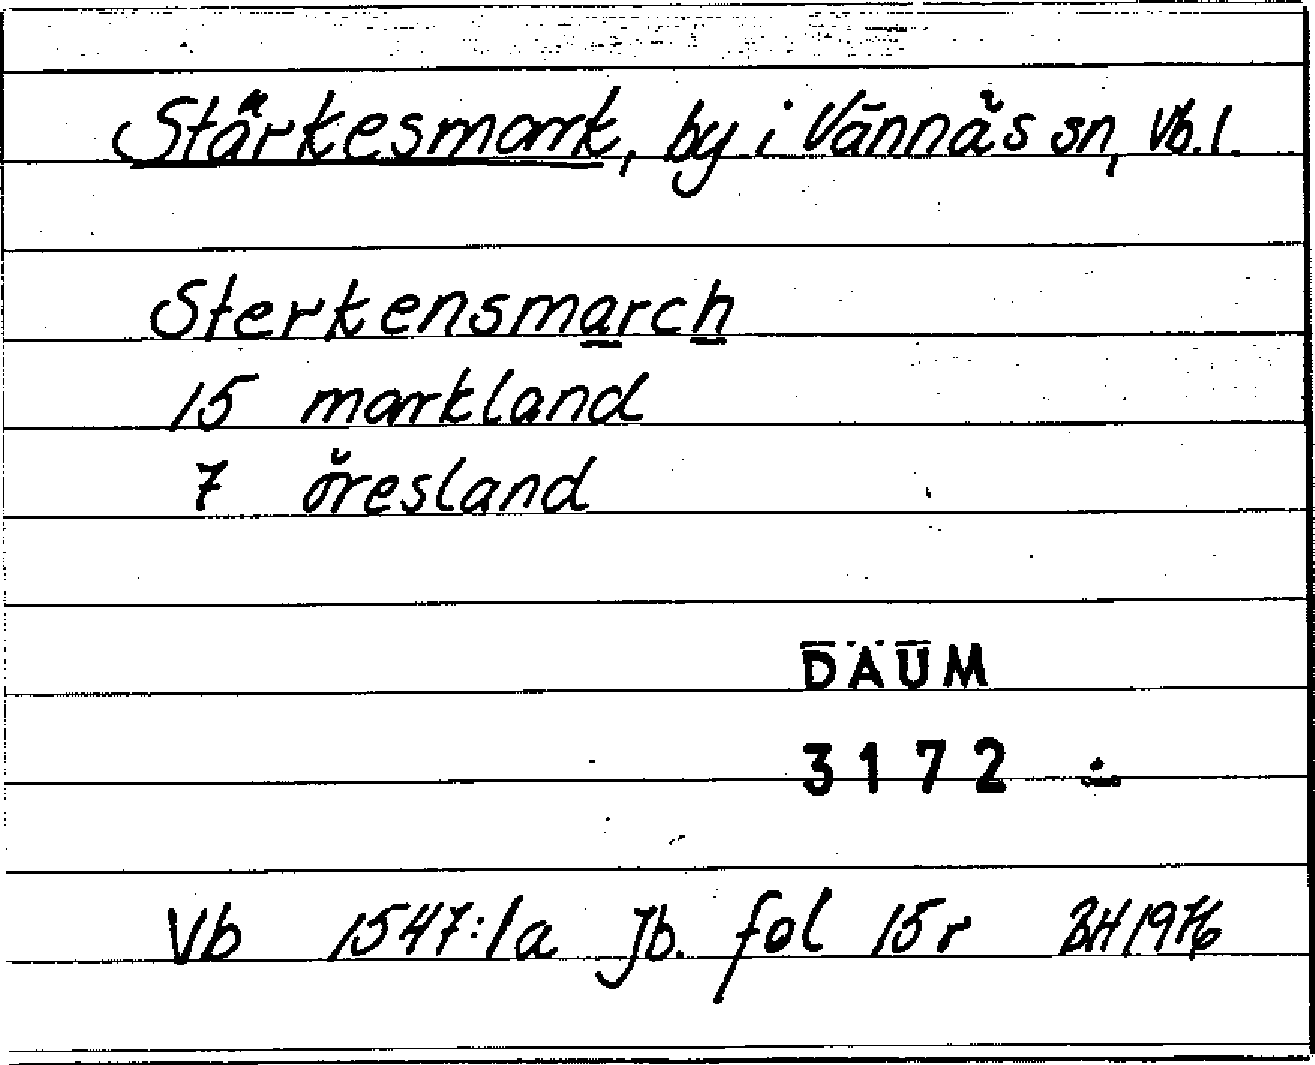 Stärkesmark, by i Vännäs sn, Vb.l.
Sterkensmarch
15 markland
7 öresland
DAUM
3172
Vb 1547:1a Jb. fol 15r BH 1976